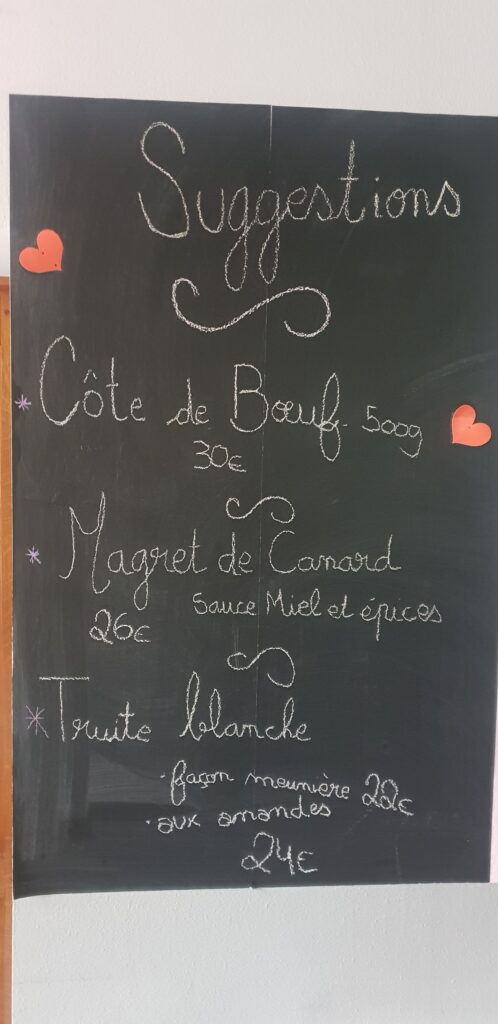 Suggestions
* Côte de Bœuf - 500g
30€
* Magret de Canard
Sauce Miel et épices
26€
* Truite blanche
· façon meunière 22€
· aux amandes
24€